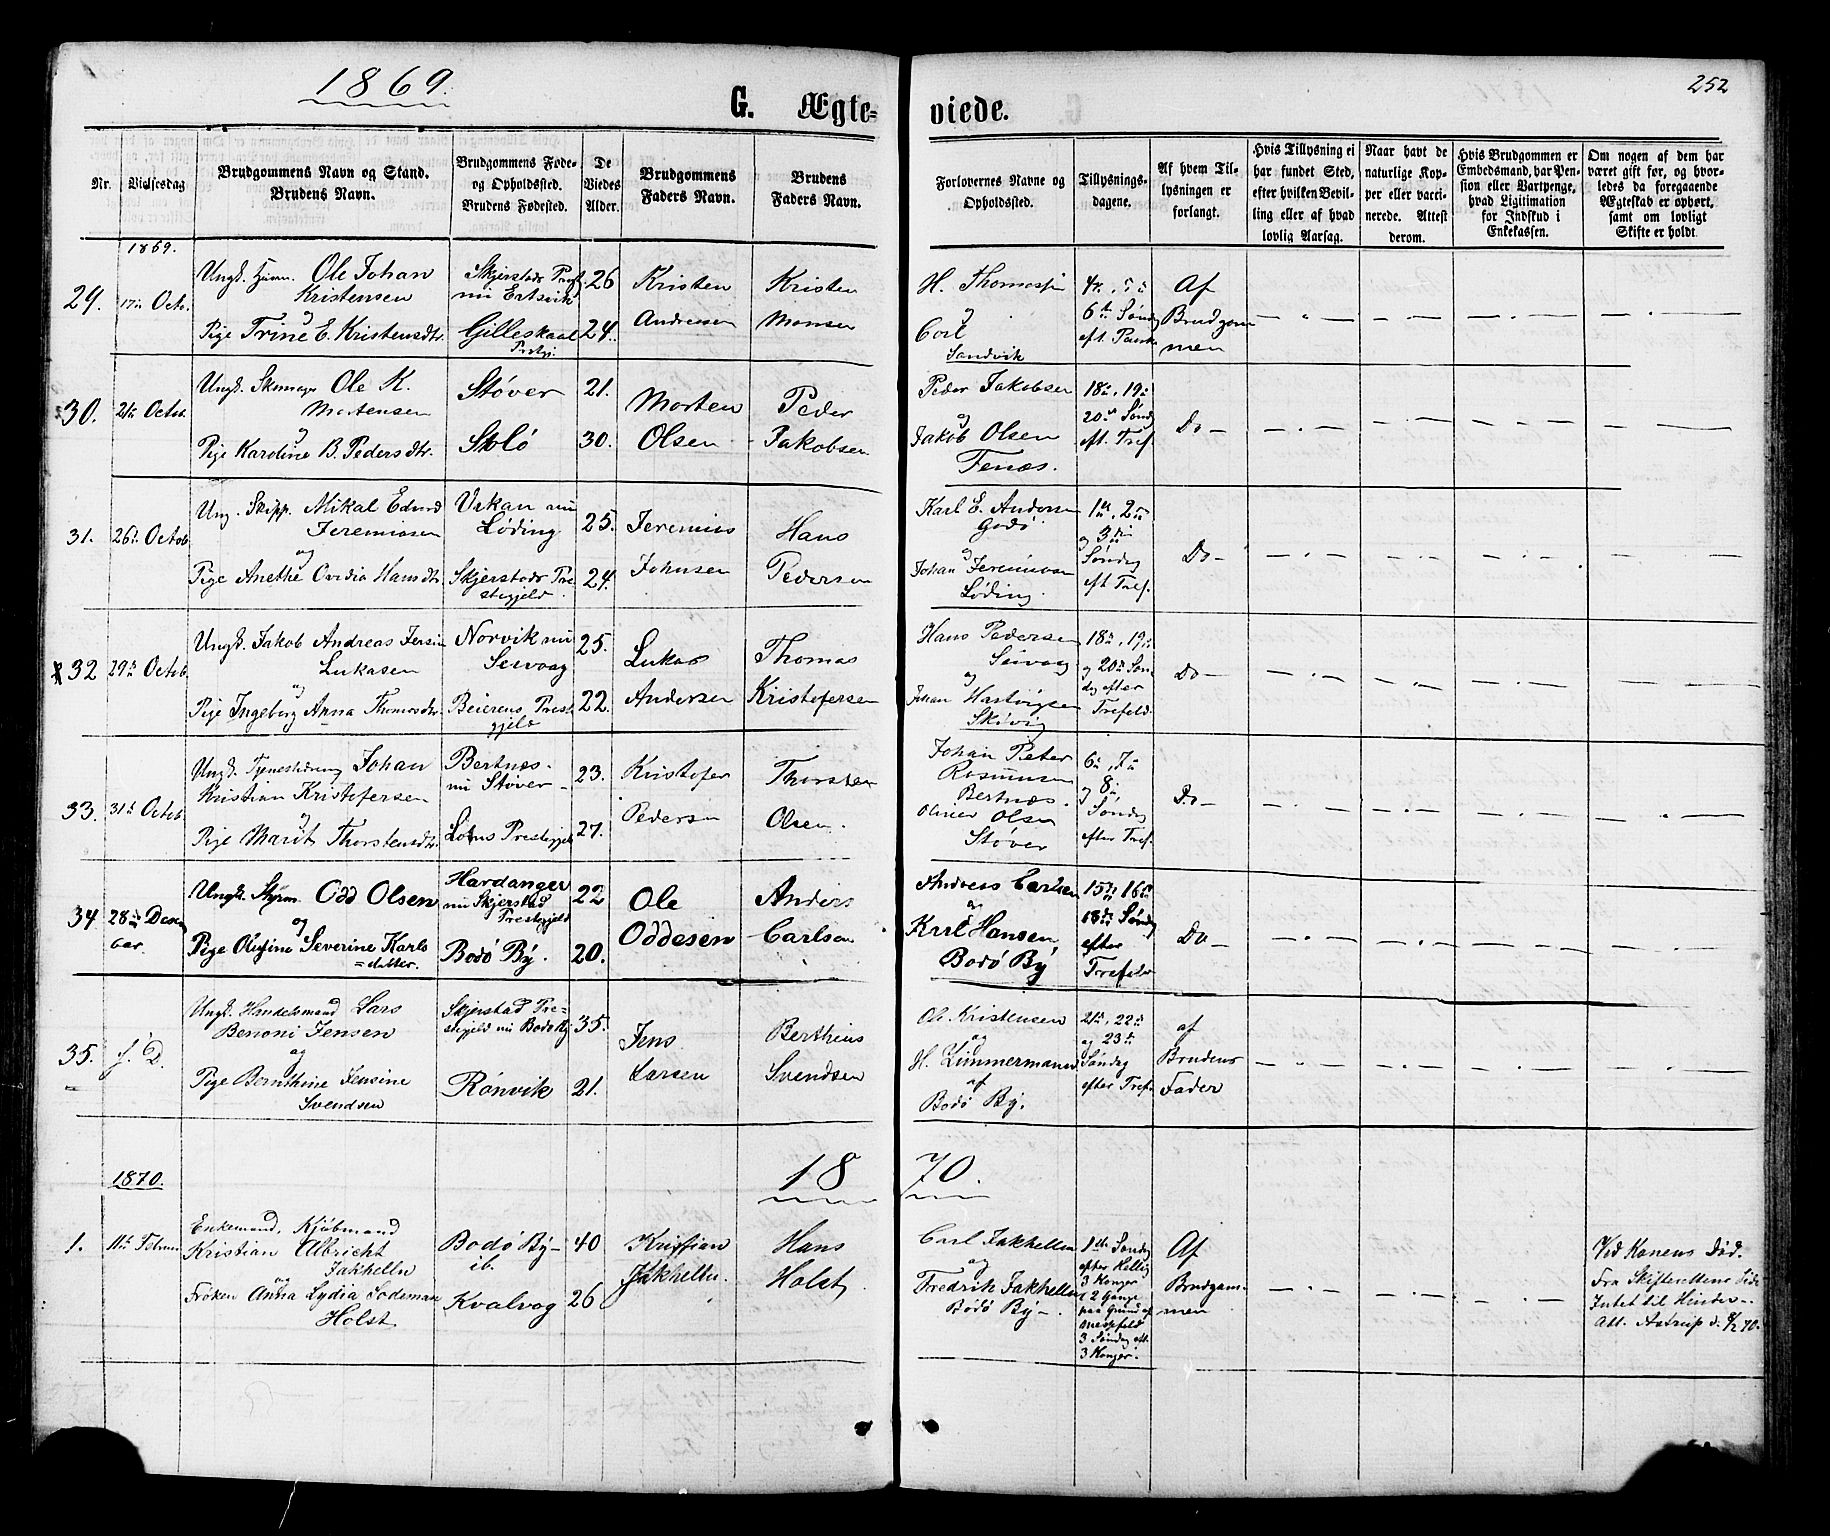 1869.
G. Ægte=
viede.
252
Nr.
Vielsesdag
Brudgommens Navn og Stand.
Brudens Navn.
Brudgommens Føde=
og Opholdssted.
Brudens Fødested.
De
Viedes
Alder.
Brudgommens
Faders Navn.
Brudens
Faders Navn.
Forlovernes Navne og
Opholdssted.
Tillysnings-
dagene.
Af hvem Til-
lysningen er
forlangt.
Hvis Tillysning ei
har fundet Sted,
efter hvilken Bevil-
ling eller af hvad
lovlig Aarsag.
Naar havt de
naturlige Kop-
per eller vacci-
nerede. Attest
derom.
Hvis Brudgommen er
Embedsmand, har Pen-
sion eller Vartpenge,
hvad Legitimation
for Indskud i
Enkekassen.
Om nogen af dem har
været gift før, og hvor-
ledes da foregaaende
Ægteskab er ophørt,
samt om lovligt
Skifte er holdt.
1869.
29. 17de Octo.
Ungk. Ole Johan
Kristensen
og
Pige Trine E. Kristensdtr.
Skjerstads
nu Ertsvik
Gilleskaal
Prstgj.
26
24.
Kristen
Andreasen
Kristen
Monsen
H.
og
Carl
Sandvik
6te Søndg
eft. Paask.
Af
Brudgom
men
30. 21de Octo.
Ungk. Ole K.
Mortensen
og
Pige Karoline B. Pedersdtr.
Støver
Stolø
21.
30.
Morten
Olsen
Peder
Jakobsen
Peder Jakobsen
og
Jakob Olsen
Tenæs.
18de, 19de
20de Søndg
eft. Tref.
Do
31. 26de Octob.
Ung. Skipp. Mikal Edvard
Jeremiasen
og
Pige Anethe Ovidia Hansdtr.
Vikan nu
Løding
Skjerstads Pre
stegjeld.
25.
24.
Jeremias
Johnsen
Hans
Pedersen
Karl E. Andersen
Godø.
og
Johan Jeremiasen
Løding.
1ste, 2den
og 3die
Søndg
eft Tref.
Do
32 29de Octob.
Ungk. Jakob Andreas
Lukasen
og
Pige Ingeborg Anna Thomasdtr.
Norvik nu
Seivaag
Beierens Prest
gjeld
25.
22.
Lukas
Andersen
Thomas
Kristofersen
Hans Pedersen
Seivaag
og
Johan Hartvigsen
Skivig
18de, 19de
og 20de Søn
dg efter
Trefold.
Do
33. 31de Octob.
Ungk. Tjenestedreng Johan
Kristian Kristofersen
og
Pige Marit Thorstensdtr.
Bertnæs.
nu Støver
Loms Prestegjeld
23.
27.
Kristofer
Pedersen
Thorsten
Olsen.
Johan Peter
Rasmusen
Bertnæs.
Olivier Olsen
Støver
6te, 7de
og 8de
Søndg
efter Tref.
Do
34 28de Decem
ber.
Ungk. Styrm. Odd Olsen
og
Pige Olufine Severine Karls
=datter.
Hardanger
nu Skjerstad
Prestegjeld
Bodø By.
22
20.
Ole
Oddesen
Anders
Carlsen
Anders Carlsen
og
Karl Hansen
Bodø By
15de 16de
18de Søndg
efter
Trefold
Do
35. s. D.
Ungk. Handelsmand Lars
Benoni Jensen
og
Pige Bernthine Jensine
Svendsen
Skjerstad Pre=
stegjeld nu Bodø By
Rønvik
35.
21.
Jens
Larsen
Berthius
Svendsen
Ole Kristensen
og
H. Zimmermann
af
Bodø By.
21de, 22de
og 23de
Søndg
efter Tref.
af
Brudens
Fader
1870.
18 70.
1. 11te Februar
Enkemand, Kjøbmand
Kristian Albricht
Jakhelln
og
Frøken Anna Lydia Sodeman
Holst
Bodø By
ib.
Kvalvog
40
26
Kristian
Jakhelln.
Hans
Holst
Carl Jakhelln
og
Fredrik Jakhelln
Bodø By
1ste Søndg
efter Hellig
3 Konger
2 Gange
paa Grund af
3 Søndg eft.
3 Konger.
Af
Brudgom-
men
Ved Konens Død.
Fra Skifterettens Side
Intet til Hinder.
Att. Astrup d. 8/2 70.